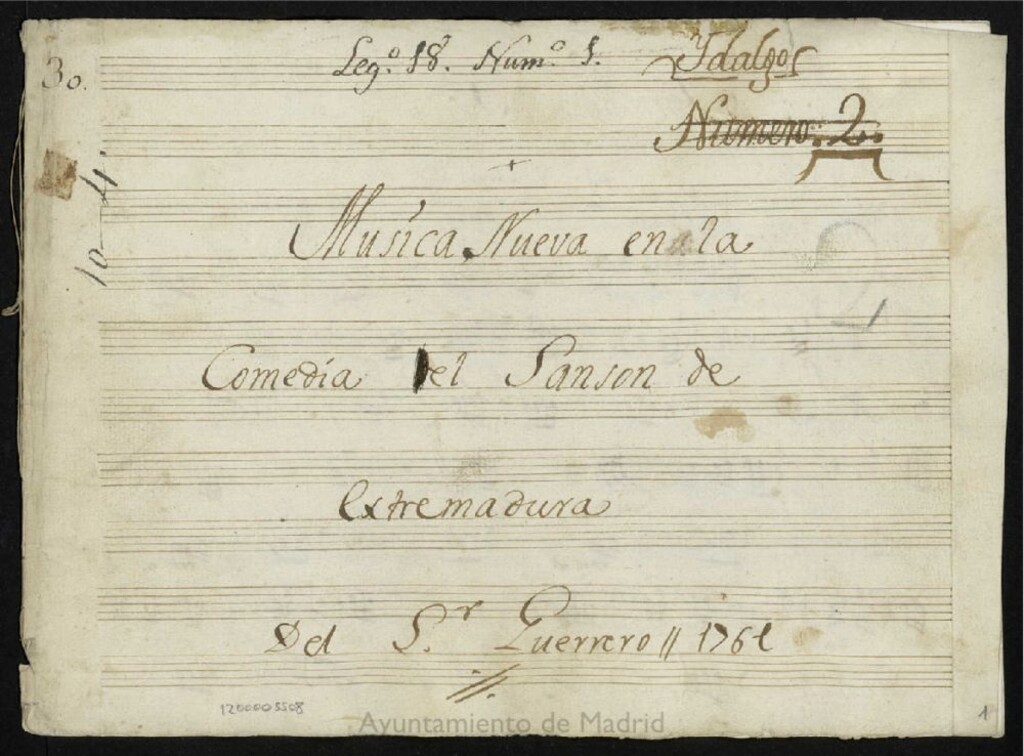 30.
Legº. 18. Numº. 1.
Ydalgo
Numero: 2.
10-4
Musica Nueva en la
Comedia del Sanson de
Extremadura
Del S.r Guerrero // 1761
1200005508
Ayuntamiento de Madrid
1